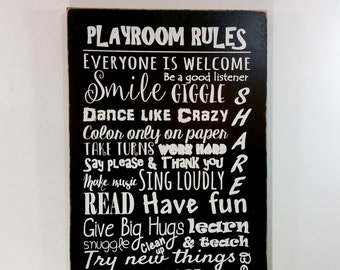 PLAYROOM RULES
EVERYONE IS WELCOME
Be a good listener
Smile GIGGLE
DANCE LIKE CRAZY
SHARE
Color only on paper
TAKE TURNS WORK HARD
Say please & Thank you
Make music SING LOUDLY
READ Have fun
Give Big Hugs learn
snuggle Clean up & teach
Try new things